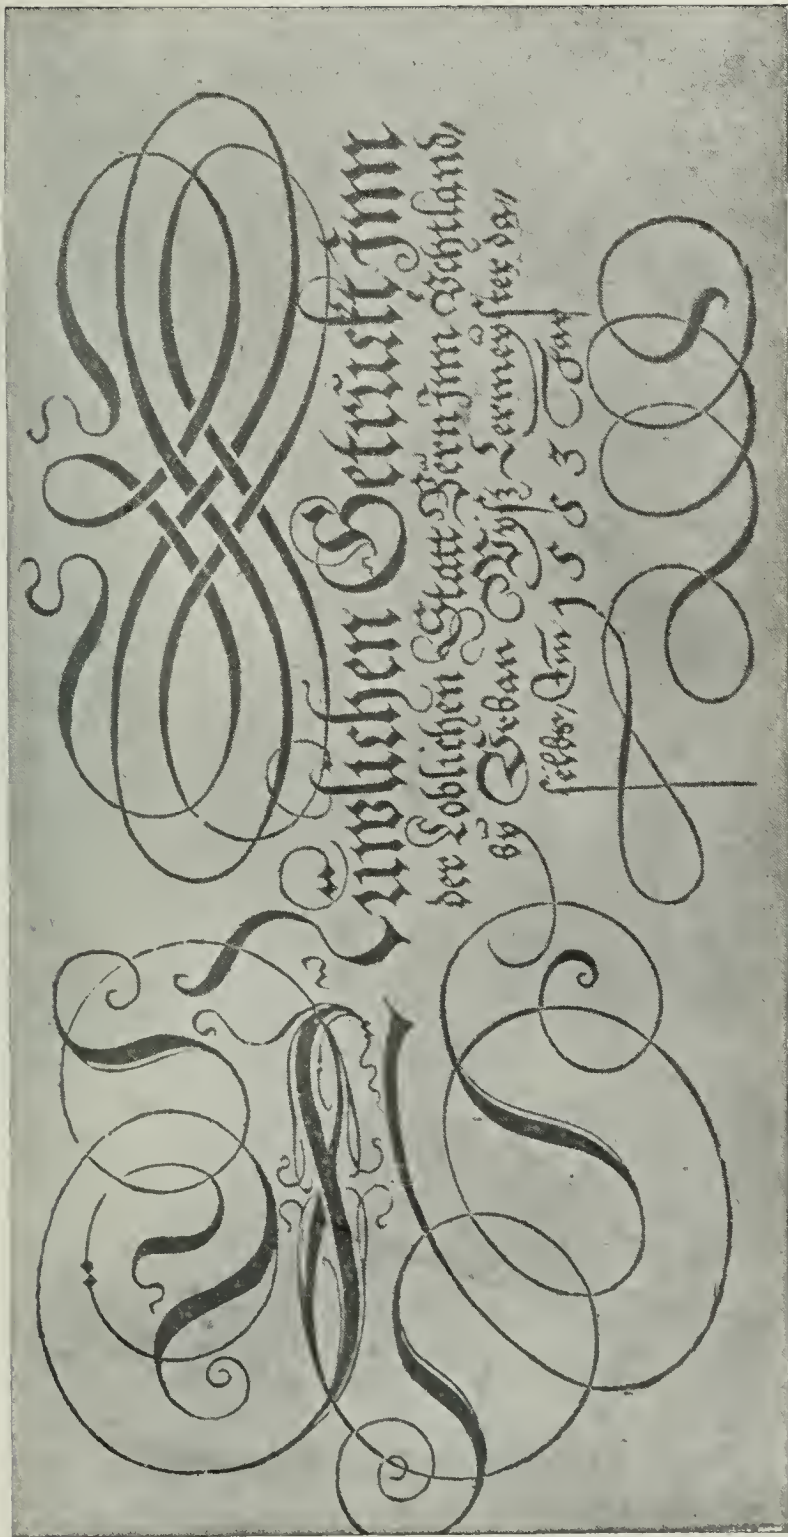 Nuwlichen Getruckt Jnn
der Loblichen Statt Bern Jnn Vchtland,
by Vrban Wyß Lermeyster da,
selbs, Am 1 5 5 3 Jar